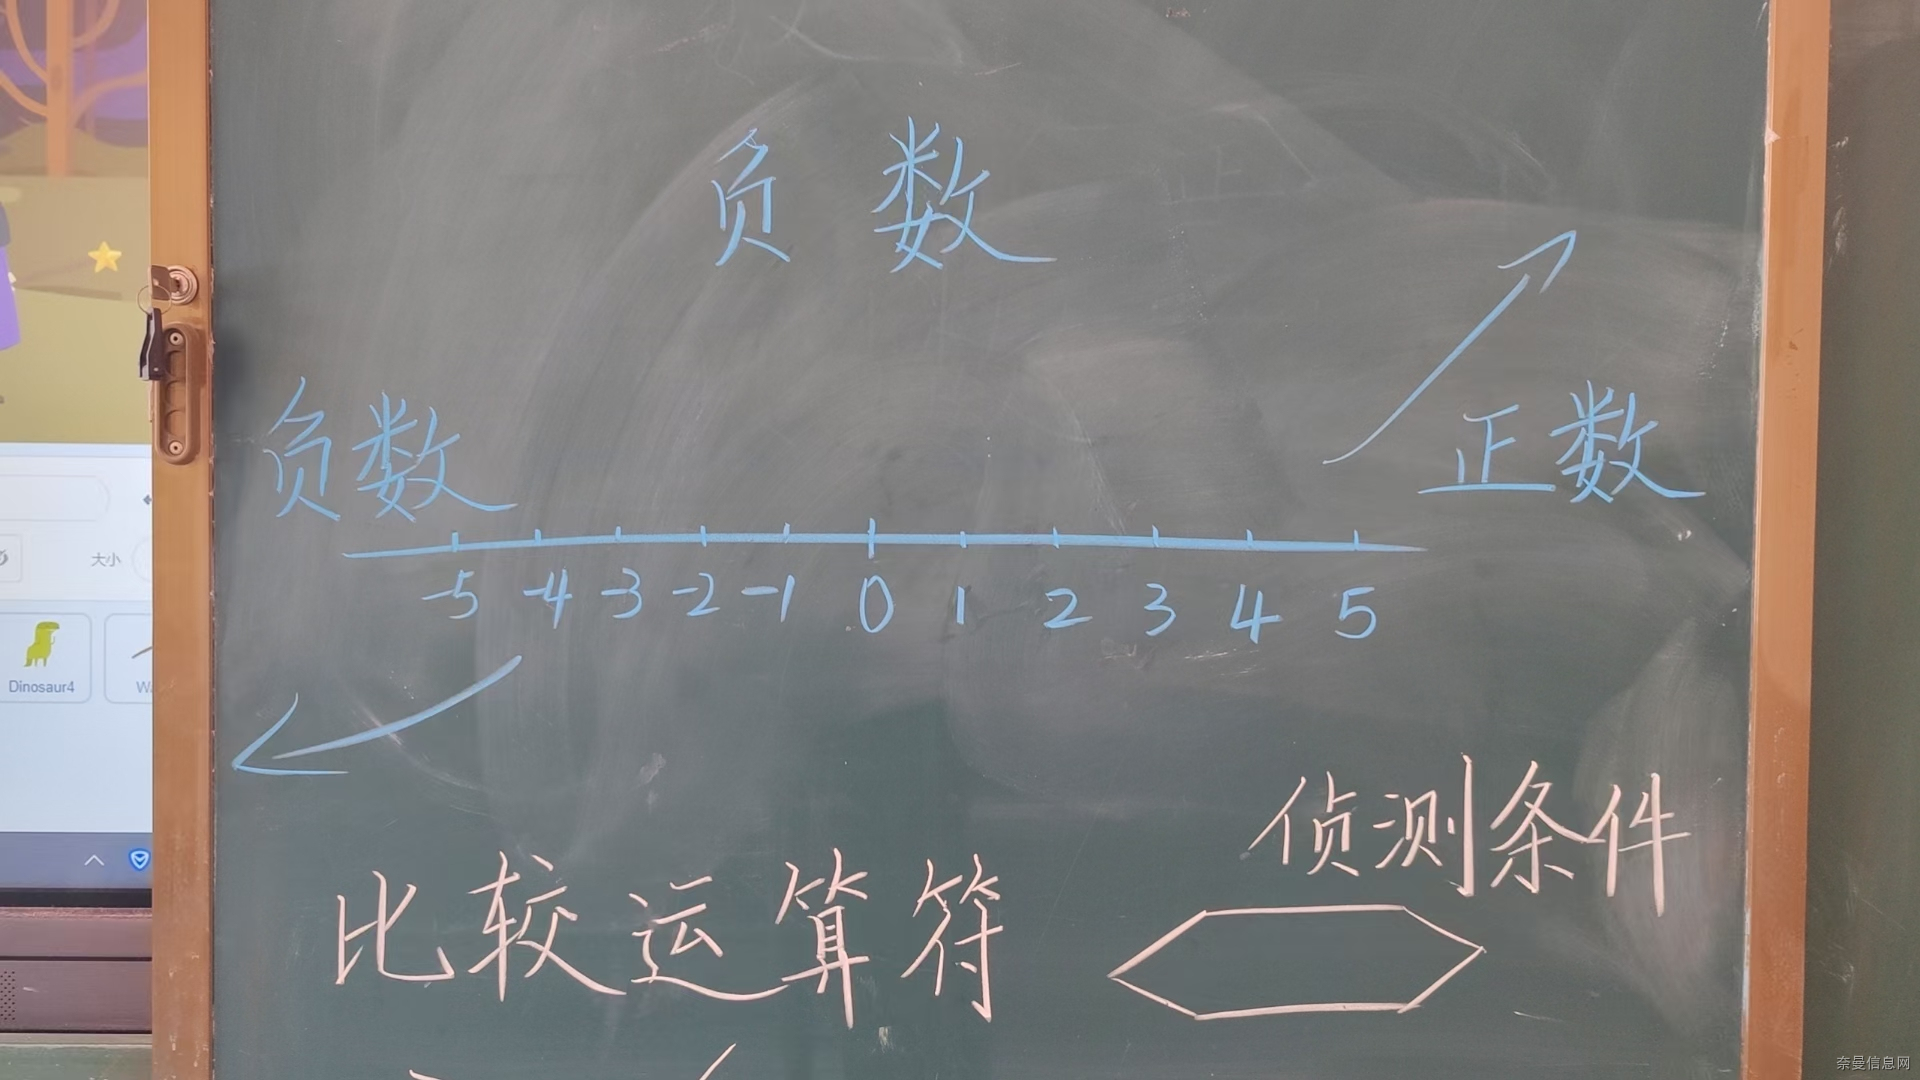 负数
负数
正数
-5 -4 -3 -2 -1 0 1 2 3 4 5
大小
Dinosaur4
侦测条件
比较运算符
奈曼信息网